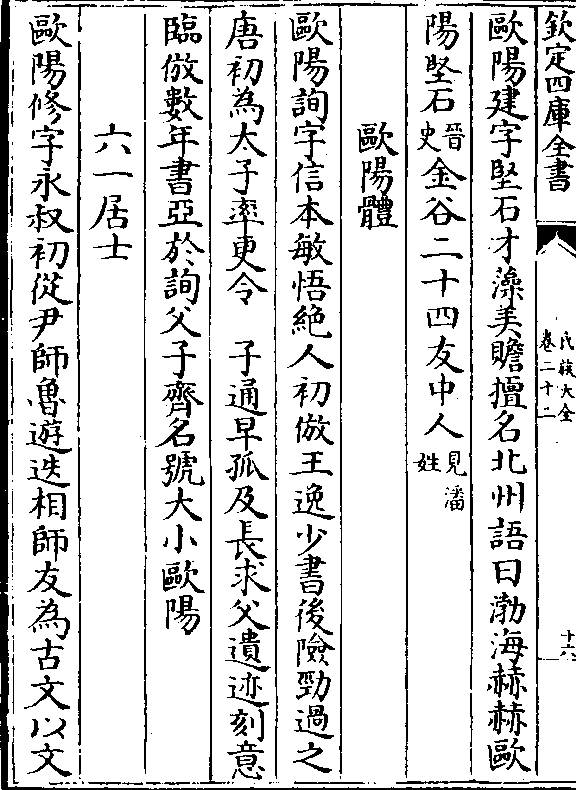 欽定四庫全書
氏族大全
卷二十二
十六
歐陽建字堅石才藻美贍擅名北州語曰渤海赫赫歐
陽堅石晉史金谷二十四友中人見潘姓
歐陽體
歐陽詢字信本敏悟絶人初倣王逸少書後險勁過之
唐初為太子率更令　子通早孤及長求父遺迹刻意
臨倣數年書亞於詢父子齊名號大小歐陽
六一居士
歐陽修字永叔初從尹師魯遊迭相師友為古文以文